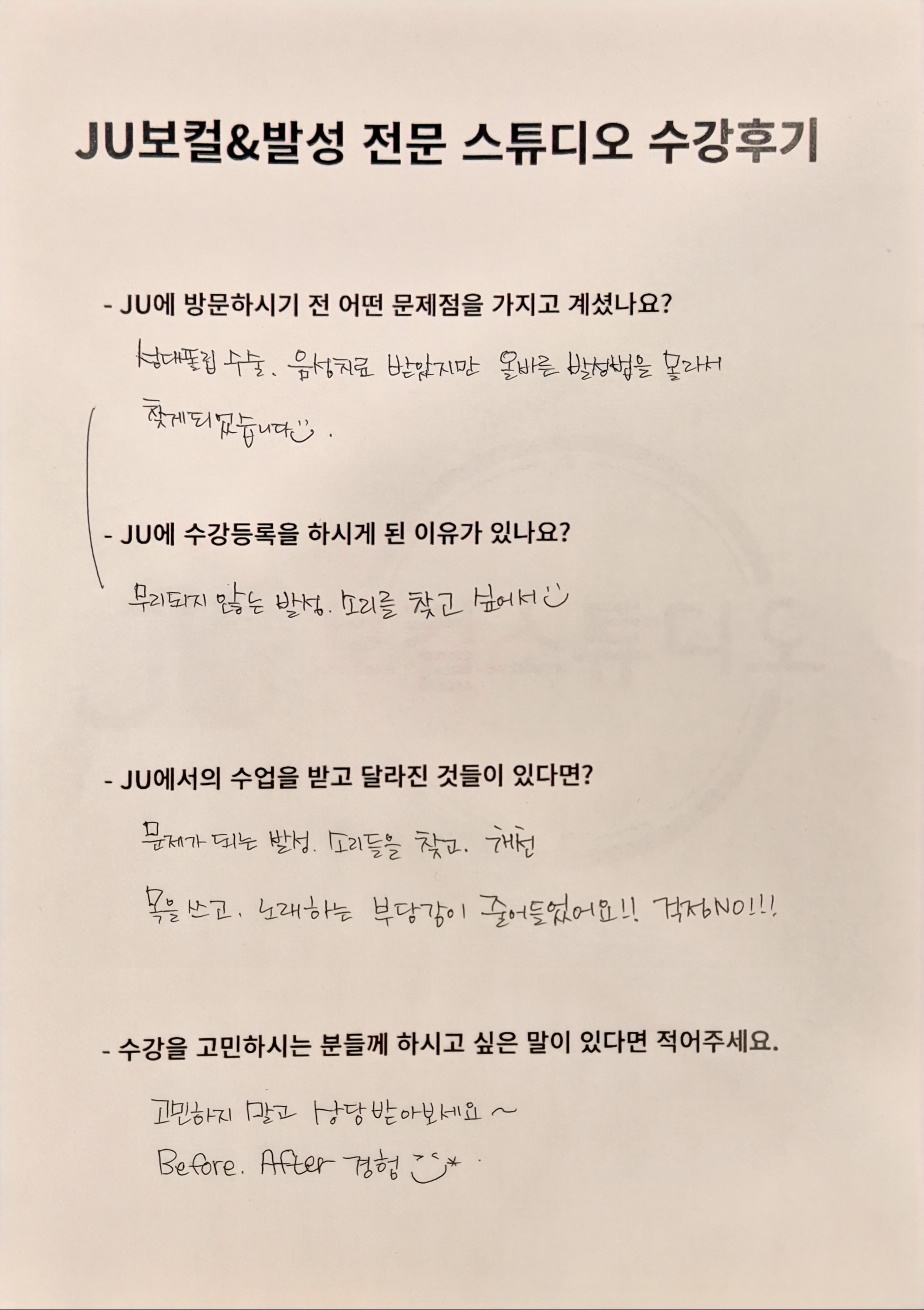 JU보컬&발성 전문 스튜디오 수강후기
- JU에 방문하시기 전 어떤 문제점을 가지고 계셨나요?
성대폴립 수술. 음성치료 받았지만 올바른 발성법을 몰라서
찾게되었습니다.
- JU에 수강등록을 하시게 된 이유가 있나요?
무리되지 않는 발성. 소리를 찾고 싶어서
- JU에서의 수업을 받고 달라진 것들이 있다면?
문제가 되는 발성. 소리들을 찾고.
목을 쓰고. 노래하는 부담감이 줄어들었어요!! 걱정NO!!!
- 수강을 고민하시는 분들께 하시고 싶은 말이 있다면 적어주세요.
고민하지 말고 상담받아보세요~
Before. After 경험